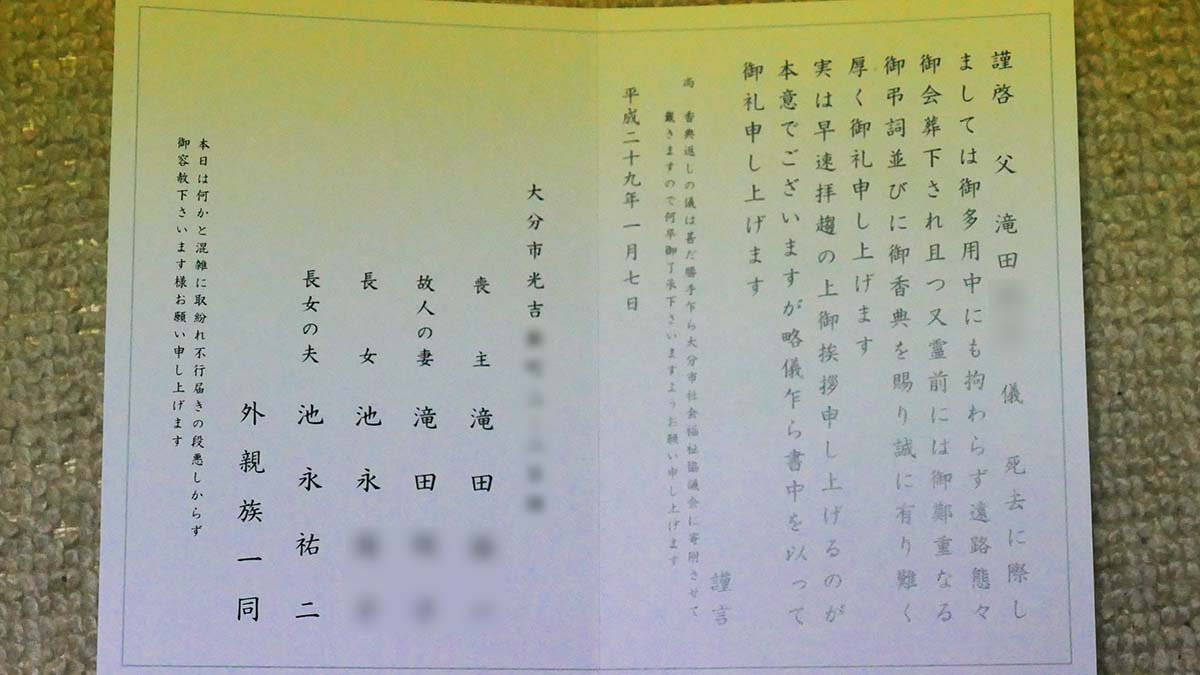 謹啓 父 滝田 儀 死去に際し
ましては御多用中にも拘わらず遠路態々
御会葬下され且つ又霊前には御鄭重なる
御弔詞並びに御香典を賜り誠に有り難く
厚く御礼申し上げます
実は早速拝趨の上御挨拶申し上げるのが
本意でございますが略儀乍ら書中を以って
御礼申し上げます
謹言
尚 香典返しの儀は甚だ勝手乍ら大分市社会福祉協議会に寄附させて
戴きますので何卒御了承下さいますようお願い申し上げます
平成二十九年一月七日
大分市光吉
喪主 滝田
故人の妻 滝田
長女 池永
長女の夫 池永祐二
外親族一同
本日は何かと混雑に取紛れ不行届きの段悪しからず
御容赦下さいます様お願い申し上げます